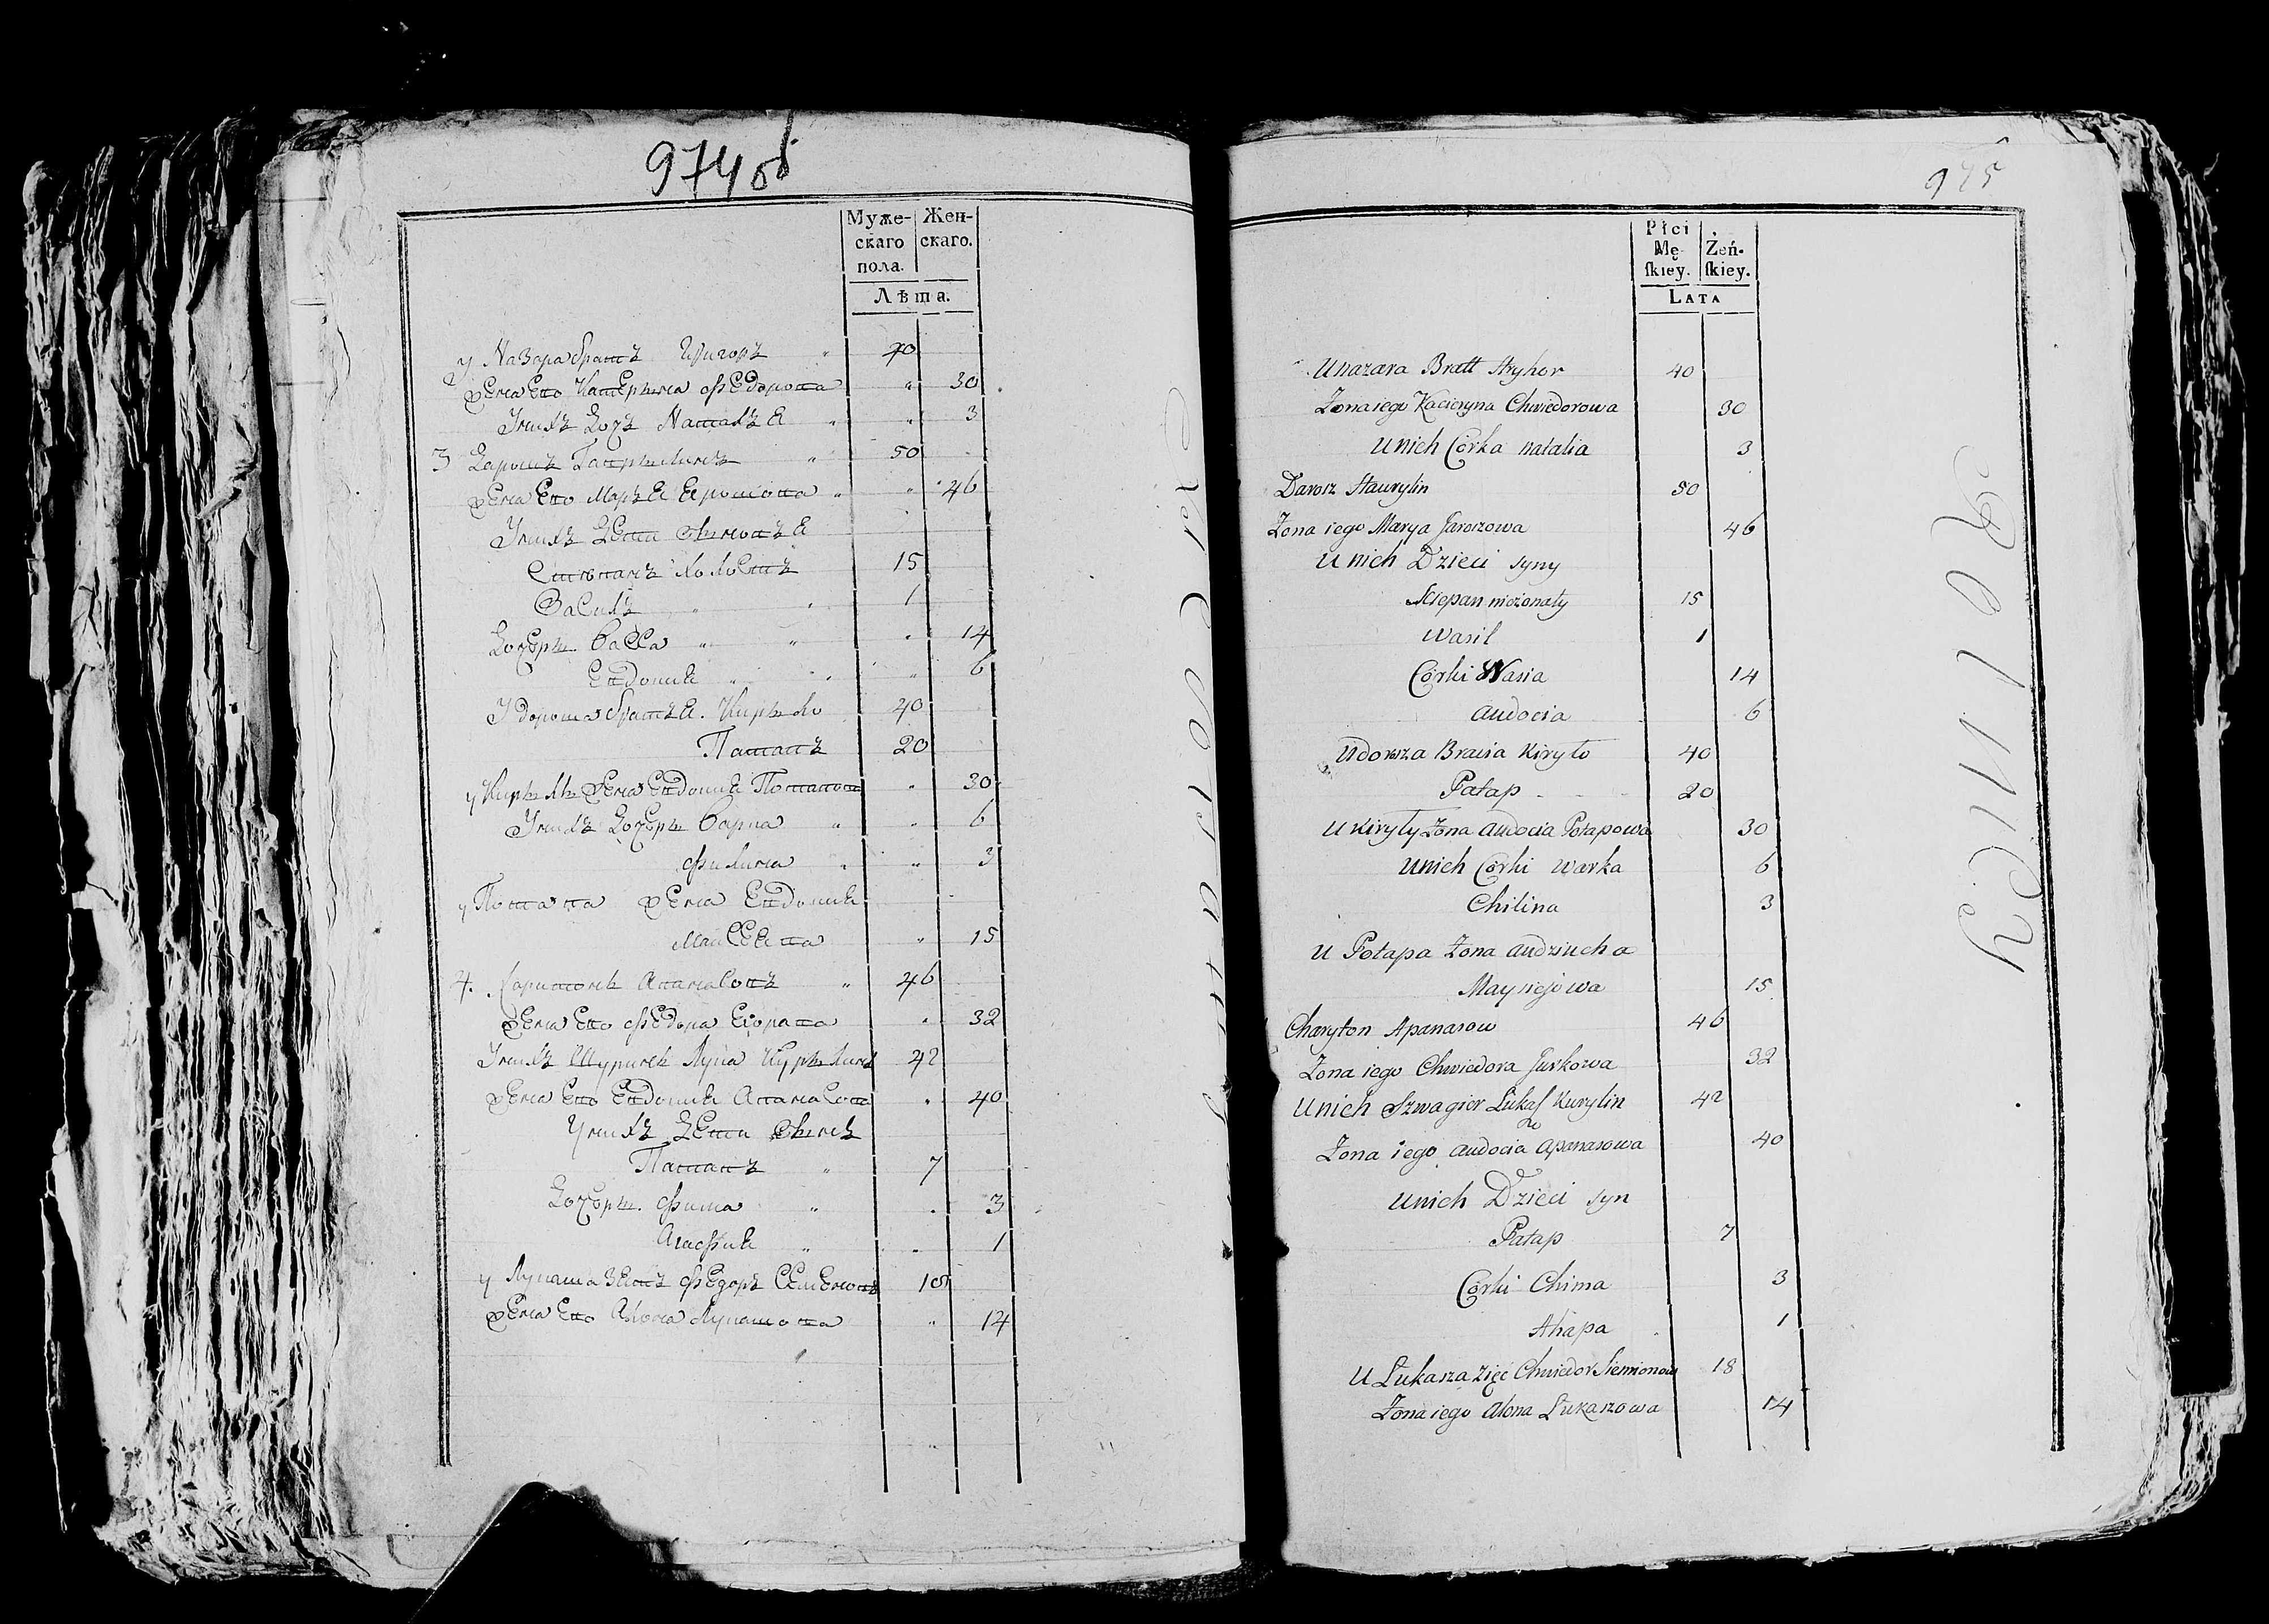 974 об
Муже- Жен-
скаго скаго.
пола.
Лѣта.
у Назара братъ Григоръ " 40
жена его Катерына Федорова " 30
У нихъ дочъ Наталъя " " 3
3 Дарошъ Гаврылинъ " 50
жена его Маръя Ярошова " " 46
У нихъ дети сыновъя
Стэпанъ холостъ 15
Василъ " " 1
Дочеры Васса " " " 14
Евдокия " " " 6
У дороша братъя. Кирыло 40
Патапъ 20
у Кирылы жена Евдокия Потапова " 30
У нихъ дочеры Варка " " 6
Филина " " 3
у Потапа жена Евдокия
Мавсеева " 15
4. Харитонъ Апанасовъ " 46
жена его Федора Юркова " 32
У нихъ Шуринъ Лукаш Курылинъ 42
жена его Евдокия Апанасова " 40
У нихъ дети сынъ
Патапъ " 7
Дочеры. Фима " " 3
Агафия " " 1
у Лукаша зять Федоръ Семеновъ 18
жена его Алона Лукашова " 14
975
Płci
Mę- Żeń-
ſkiey. ſkiey.
LATA
U nazara Bratt Hryhor 40
Żona iego Kacieryna Chwiedorowa 30
U nich Córka natalia 3
Darosz Hawrylin 50
Żona iego Marya Jaroszowa 46
U nich Dzieci syny
Sciepan nieżonaty 15
Wasil 1
Córki Wasia 14
audocia 6
U dorosza Bracia Kiryło 40
Patap 20
U Kiryły Żona audocia Potapowa 30
U nich Córki Warka 6
Chilina 3
U Potapa Żona audziucha
Maysiejowa 15
Charyton Apanasow 46
Żona iego Chwiedora Jurkowa 32
U nich Szwagier Łukaſz Kurylin 42
Żona iego audocia apanasowa 40
U nich Dzieci syn
Patap 7
Córki Chima 3
Ahapa 1
U Łukasza zięć Chwiedor Siemionow 18
Żona iego alona Łukaszowa 14